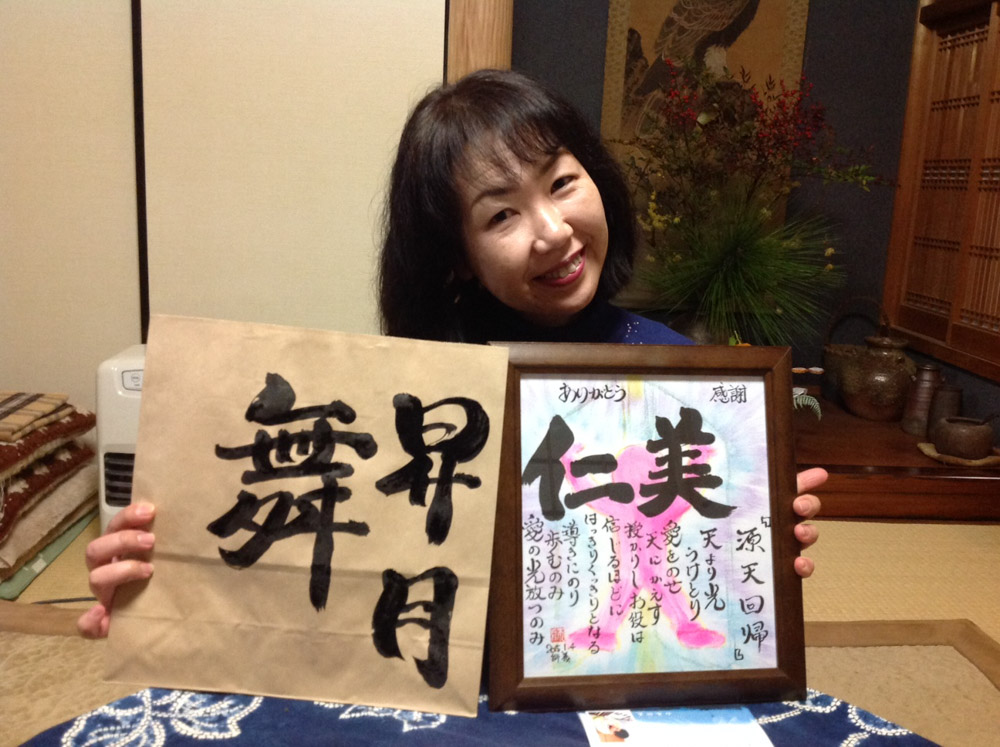 昇月
舞
ありがとう
感謝
仁美
『源天回帰』
天より光
うけとり
愛をのせ
天にかえす
授かりしお役は
信じるほどに
はっきりくっきりとなる
導きにのり
歩むのみ
愛の光放つのみ